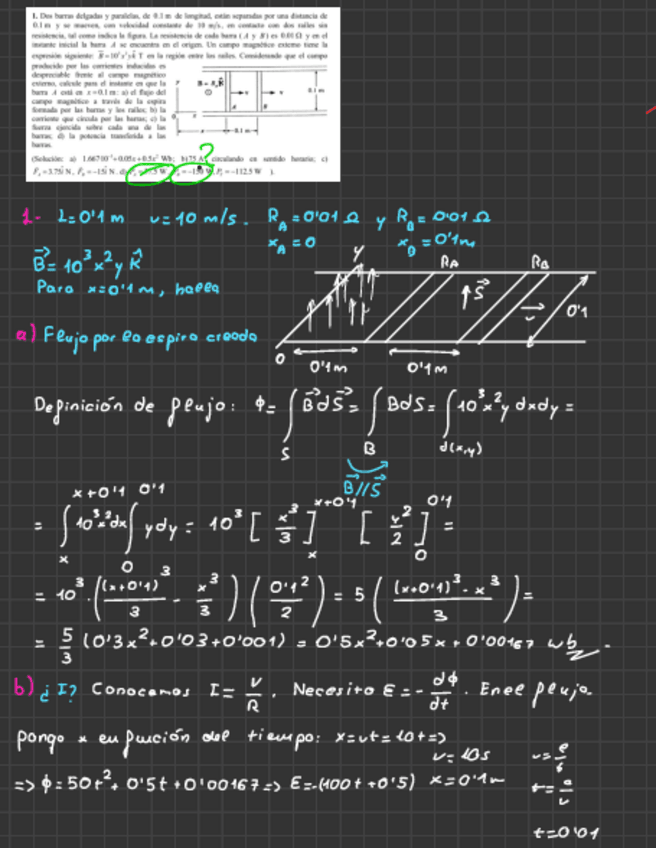 1. Dos barras delgadas y paralelas, de 0.1 m de longitud, están separadas por una distancia de
0.1 m y se mueven, con velocidad constante de 10 m/s, en contacto con dos raíles sin
resistencia, tal como indica la figura. La resistencia de cada barra (A y B) es 0.01 Ω y en el
instante inicial la barra A se encuentra en el origen. Un campo magnético externo tiene la
expresión siguiente: B=10³x²yk T en la región entre los raíles. Considerando que el campo
producido por las corrientes inducidas es
despreciable frente al campo magnético
externo, calcule para el instante en que la
barra A está en x=0.1 m: a) el flujo del
campo magnético a través de la espira
formada por las barras y los raíles; b) la
corriente que circula por las barras; c) la
fuerza ejercida sobre cada una de las
barras; d) la potencia transferida a las
barras.
A B
0.1 m
0.1 m
?
(Solución: a) 1.66710⁻³+0.05x+0.5x² Wb; b)75 A, circulando en sentido horario; c)
F=3.75i N, F=-15i N. d) W, W, P=-112.5 W ).
1- L=0'1 m v=10 m/s. R_A=0'01 Ω y R_B=0'01 Ω
x_A=0 x_B=0'1m
B⃗=10³x²y k̂
Para x=0'1m, halla
y R_A R_B
S⃗ v⃗ 0'1
0 0'1m 0'1m
a) Flujo por la espira creada
Definición de flujo: Φ=∫_S B⃗dS⃗=∫_B BdS=∫_d(x,y) 10³x²y dxdy=
B⃗//S⃗
=∫_x^{x+0'1} 10³x²dx ∫_0^{0'1} ydy = 10³ [x³/3]_x^{x+0'1} [y²/2]_0^{0'1} =
= 10³·((x+0'1)³/3 - x³/3)(0'1²/2) = 5((x+0'1)³-x³/3)=
= 5/3 (0'3x²+0'03+0'001) = 0'5x²+0'05x+0'00167 wb.
b) ¿I? Conocemos I=V/R. Necesito E=-dΦ/dt. En el flujo
pongo x en función del tiempo: x=vt=10t=>
v=10s
=> Φ=50t²+0'5t+0'00167=> E=-(100t+0'5) x=0'1m
t=0'01